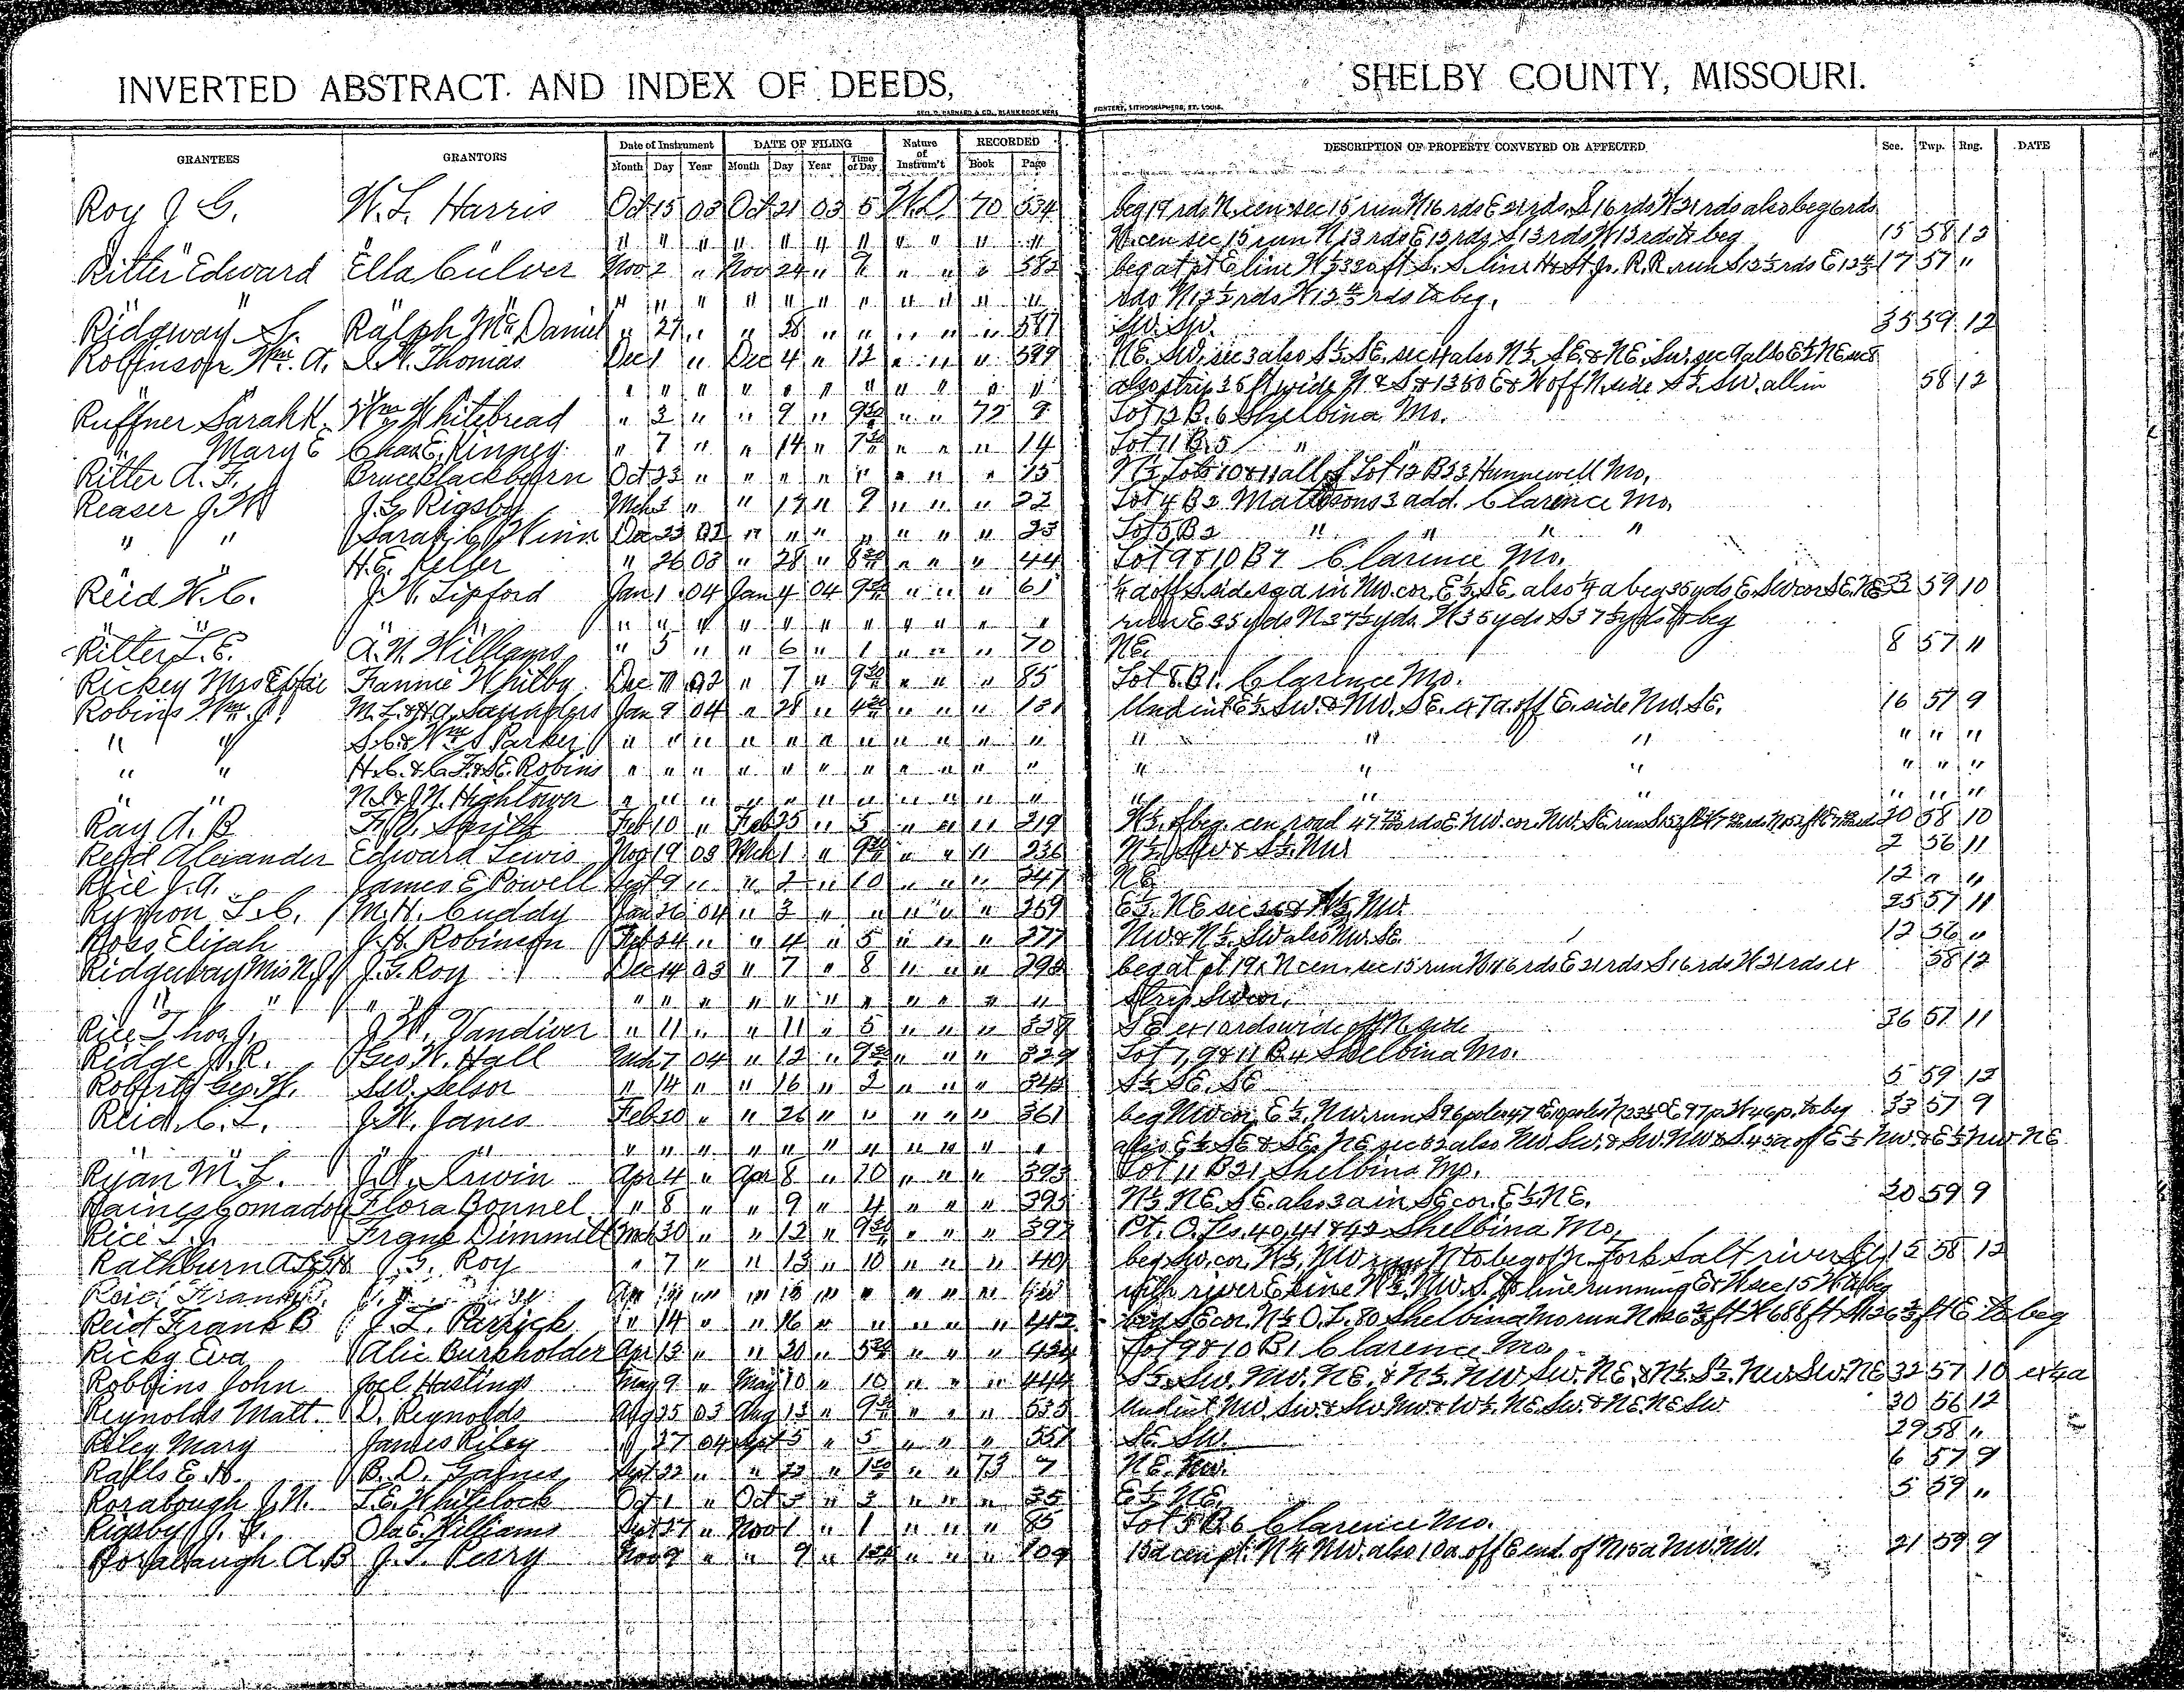 INVERTED ABSTRACT AND INDEX OF DEEDS, SHELBY COUNTY, MISSOURI.
GRANTEES GRANTORS Date of Instrument DATE OF FILING Nature of Instrum't RECORDED DESCRIPTION OF PROPERTY CONVEYED OR AFFECTED Sec. Twp. Rng. DATE
Month Day Year Month Day Year Time of Day Book Page
Roy J G. W. L. Harris Oct 15 03 Oct 21 03 5 W.D. 70 534 beg 19 rds N. cen sec 15 run N 16 rds E 21 rds S 16 rds W 21 rds also beg 6 rds
" " " " " " " " " " " " W. cen sec 15 run N 13 rds E 13 rds S 13 rds W 13 rds to beg 15 58 12
Ritter Edward Ella Culver Nov 2 " Nov 24 " " " " 582 beg at pt E line W ½ 330 ft S. S. line H & St Jo. R.R. run S 12 ½ rds E 12 ⅘ 17 57 "
" " " " " " " " " " " rds N 12 ½ rds W 12 ⅘ rds to beg.
Ridgway S. Ralph Mc Daniel " 27 " " 28 " " " " " 587 SW. SW. 35 59 12
Robinson Wm. A. Thomas Dec 1 " Dec 4 " 12 " " " 599 NE. SW. sec 3 also S ½ SE. sec 4 also N ½ SE & NE. SW. sec 9 also E ½ NE sec 8
" " " " " " " " " " " also strip 35 ft wide N & S & 1350 E & W off N. side S ½ SW. all in 58 12
Ruffner Sarah K. Wm Whitebread " 3 " " 9 " 9 30 " " 72 9 Lot 12 B. 6 Shelbina Mo.
" Mary E Chas E. Kinney " 7 " " 14 " 7 30 " " " 14 Lot 11 B. 5 " "
Ritter A. F. Bruce Blackburn Oct 23 " " " " " " " " 15 N ½ Lots 10 & 11 all of Lot 12 B 23 Hunnewell Mo.
Reaser J. W J. G. Rigsby Mch 3 " " 17 " 9 " " " 22 Lot 4 B 2 Mattesons 3 add. Clarence Mo.
" " Sarah C Winn Dec 23 02 " " " " " " " 23 Lot 5 B 2 " " " "
H. E. Keller " 26 03 " 28 " 8 30 " " " 44 Lot 9 & 10 B 7 Clarence Mo.
Reid W. C. J. W. Lipford Jan 1 04 Jan 4 04 9 30 " " " 61 ¼ a off S side in NW. cor. E ½ SE. also ¼ a beg 35 yds E. SW cor SE. NE 33 59 10
" " " " " " " " " " " " run E 35 yds N 37 ½ yds. W 35 yds S 37 ½ yds to beg
Ritter L. E. A. N. Williams " 5 " " 6 " 1 " " " 70 NE. 8 57 11
Rickey Mrs Effie Fannie Whitby Dec 02 " 7 " 9 30 " " " 85 Lot 8 B 1. Clarence Mo.
Robins Wm. J. M. L. & Saunders Jan 9 04 " 28 " 4 30 " " " 131 Und int E ½ SW. & NW. SE. 47 a. off E. side NW. SE. 16 57 9
" " S. C. & Wm S Parker " " " " " " " " " " " " " " " " "
" " H. C. & C. F. & S. E. Robins " " " " " " " " " " " " " " " " "
" " N. S. & J. N. Hightower " " " " " " " " " " " " " " " " "
Ray A. B Smith Feb 10 " Feb 25 " 5 " " " 219 W ½ of beg. cen road rds E. NW. cor. NW. SE. run S 20 58 10
Reid Alexander Edward Lewis Nov 19 03 Mch 1 " 9 30 " " " 236 N ½ SW & S ½ NW 2 56 11
Rice J. A. James E Powell Sept 9 " " 2 " 10 " " " 247 NE 12 " "
L. C. M. H. Cuddy Jan 26 04 " 3 " " " " " 269 E ½ NE sec 26 & W ½ NW. 25 57 11
Ross Elijah J. H. Robinson Feb 24 " " 4 " 5 " " " 277 NW & N ½ SW also NW. SE. 12 56 "
Ridgeway Mrs N. J. J. G. Roy Dec 14 03 " 7 " 8 " " " 295 beg at pt 19 r N cen. sec 15 run N 16 rds E 21 rds S 16 rds W 21 rds ex 58 12
" " " " " " " " " " " " " strip SW cor.
Rice Thos J. J. W. Vandiver " 11 " " 11 " 5 " " " SE ex 10 rds wide off N. side 36 57 11
Ridge J. R. Geo W. Hall Mch 7 04 " 12 " 9 30 " " " 329 Lot 7, 9 & 11 B. 4 Shelbina Mo.
Roberts Geo. W. Selsor " 14 " " 16 " 2 " " " 345 S ½ SE. SE 5 59 12
Reid C. L. J. W. Janes Feb 20 " " 26 " " " " " 361 beg NW cor. E ½ NW. run S 96 poles to beg 33 57 9
" " " " " " " " " " " " also E ½ SE & SE. NE sec 32 also NW SW. & SW. NW & S. 43 a of E ½ NW. & E ½ NW NE
Ryan M. L. Irwin Apr 4 " Apr 8 " 10 " " " 393 Lot 11 B 21 Shelbina Mo.
Raines Comadof Flora Bonnel " 8 " " 9 " 4 " " " 395 N ½ NE. SE. also 3 a in SE cor. E ½ NE. 20 59 9
Rice L. J. Frank Dimmitt Mch 30 " " 12 " 9 30 " " " 397 Pt. O. Ls. 40, 41 & 42 Shelbina Mo,
Rathburn J. G. Roy " 7 " " 13 " 10 " " " 401 beg SW. cor. W ½ NW run N to beg of Jr. Fork Salt river 15 58 12
with river E line W ½ NW. S. to line running E & W sec 15 W to beg
Reid Frank B J. L. Parrick " 14 " " 16 " " " " " 412 beg SE cor. N ½ O. L. 80 Shelbina Mo run N 126 ⅔ ft W 688 ft S 126 ⅔ ft E to beg
Ricky Eva Alic Burkholder Apr 13 " " 20 " 5 30 " " " 424 Lot 9 & 10 B 1 Clarence Mo.
Robbins John Joel Hastings May 9 " May 10 " 10 " " " 444 S ½ SW. NW. NE. & N ½ NW SW. NE. & N ½ S ½ NW. SW. NE 32 57 10 ex ¼ a
Reynolds Matt. D. Reynolds Aug 25 03 Aug 13 " 9 30 " " " 535 Und int NW. SW. & SW NW & W ½ NE. SW. & NE. NE SW 30 56 12
Riley Mary James Riley " 27 04 Sept 5 " 5 " " " 551 SE. SW. 29 58 "
Ralls E. H. B. D. Gaines Sept 22 " " 22 " 1 30 " " 73 7 NE. NW. 6 57 9
Rorabough J. N. L. E. Whitelock Oct 1 " Oct 3 " 3 " " " 35 E ½ NE. 5 59 "
Rigsby J. G. Ola E. Williams Sept 27 " Nov 1 " 1 " " " 85 Lot 5 B. 6 Clarence Mo.
Rorabaugh A. B J. T. Perry Nov 9 " " 9 " 1 30 " " " 109 15 a cen pt. N ½ NW. also 10 a. off E end. of N 15 a NW. NW. 21 59 9